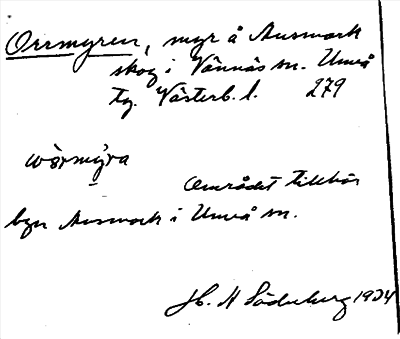 Orrmyren, myr å Ansmark
skog i Vännäs sn. Umeå
tg. Västerb. l. 279
wòrmýra
Området tillhör
byn Ansmark i Umeå sn.
H. Söderberg 1934